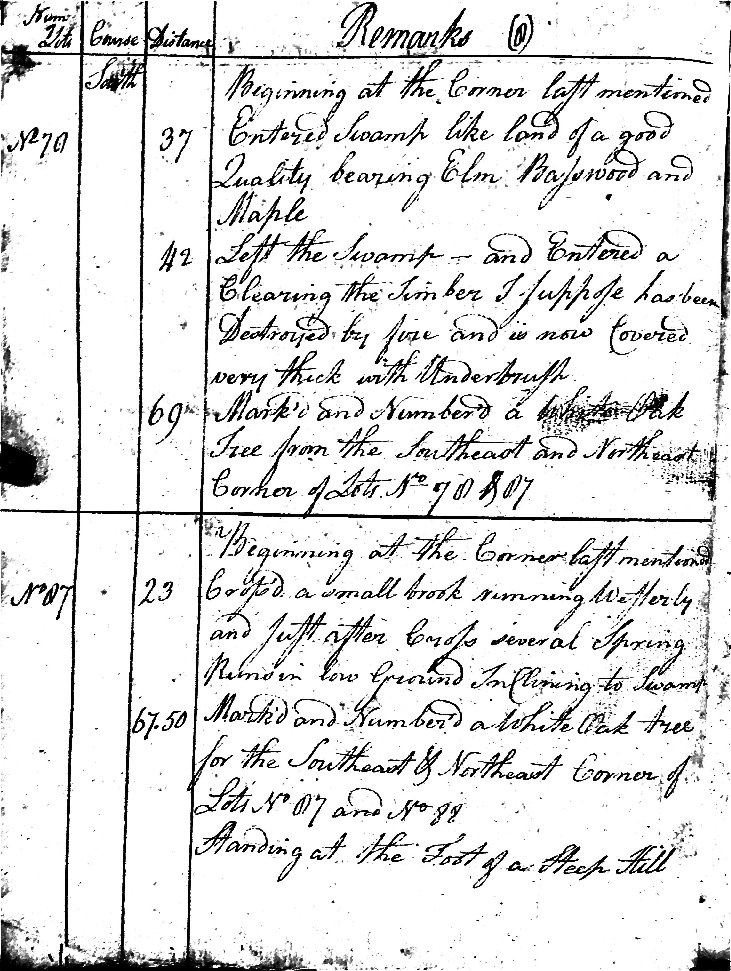 Num Lots Course Distance Remarks (8)
South Beginning at the Corner last mentioned
No 78 37 Entered Swamp like land of a good
Quality bearing Elm Basswood and
Maple
42 Left the Swamp – and Entered a
Clearing the Timber I suppose has been
Destroyed by fire and is now Covered
very thick with Underbrush
69 Mark'd and Number'd a White Oak
Tree from the Southeast and Northeast
Corner of Lots No 78 & 87
No 87 Beginning at the Corner last mentiond
23 Cross'd a small brook running Westerly
and Just after Cross several Spring
Runs in low Ground Inclining to Swamp
67.50 Mark'd and Number'd a White Oak tree
for the Southeast & Northeast Corner of
Lots No 87 and No 88
Standing at the Foot of a Steep Hill